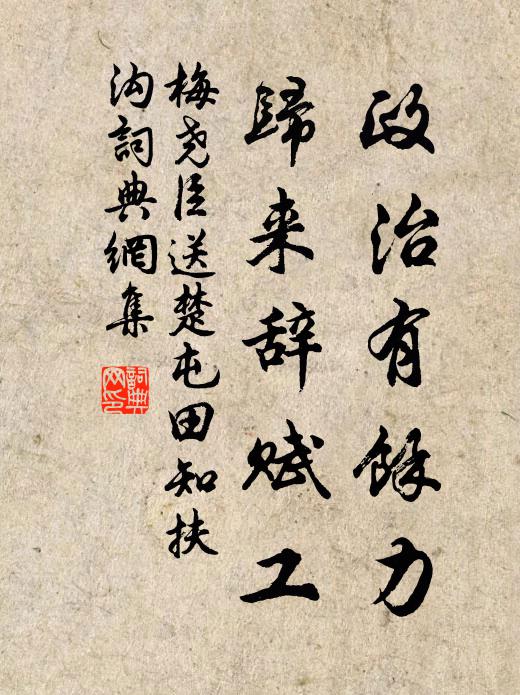 政治有餘力
歸来辞赋工
梅尧臣送楚屯田知扶
沟詞典網集
詞典
网印